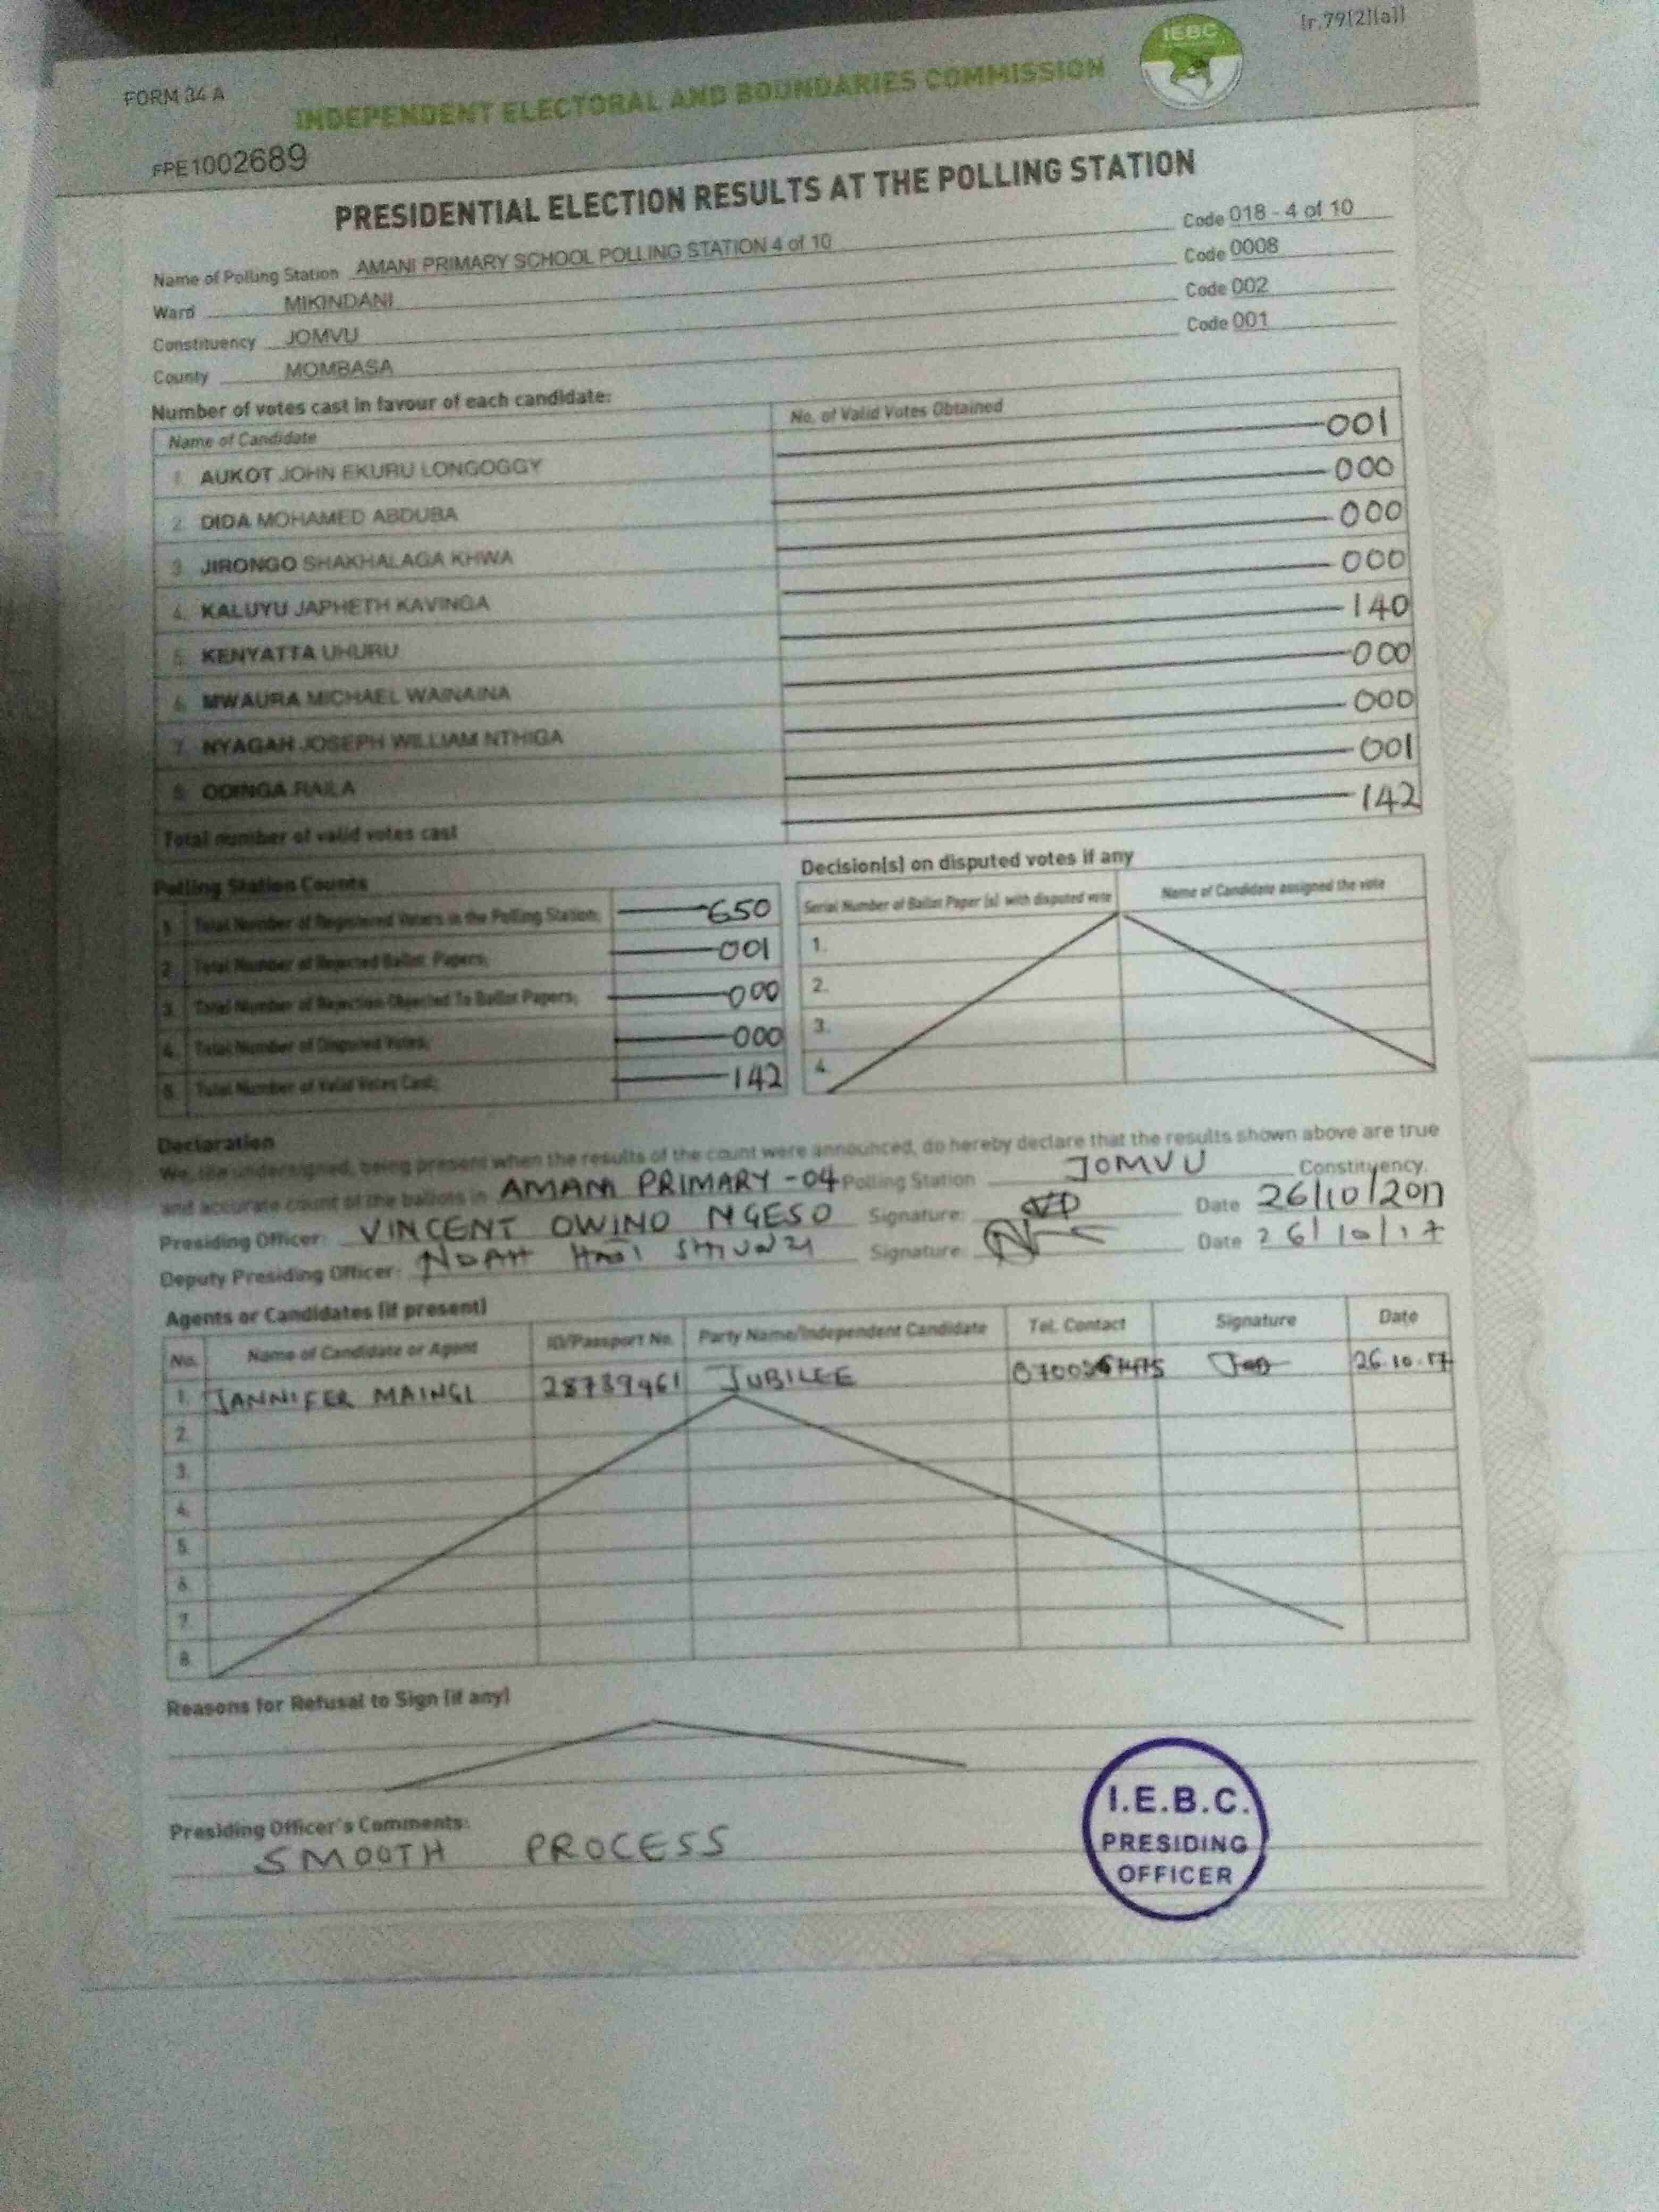 [r.79(2)(a)]
FORM 34 A
IEBC
INDEPENDENT ELECTORAL AND BOUNDARIES COMMISSION
FPE1002689
PRESIDENTIAL ELECTION RESULTS AT THE POLLING STATION
Name of Polling Station AMANI PRIMARY SCHOOL POLLING STATION 4 of 10 Code 018 - 4 of 10
Ward MIKINDANI Code 0008
Constituency JOMVU Code 002
County MOMBASA Code 001
Number of votes cast in favour of each candidate:
Name of Candidate No. of Valid Votes Obtained
1. AUKOT JOHN EKURU LONGOGGY 001
2. DIDA MOHAMED ABDUBA 000
3. JIRONGO SHAKHALAGA KHWA 000
4. KALUYU JAPHETH KAVINGA 000
5. KENYATTA UHURU 140
6. MWAURA MICHAEL WAINAINA 000
7. NYAGAH JOSEPH WILLIAM NTHIGA 000
8. ODINGA RAILA 001
Total number of valid votes cast 142
Polling Station Counts
1. Total Number of Registered Voters in the Polling Station; 650
2. Total Number of Rejected Ballot Papers; 001
3. Total Number of Rejection Objected To Ballot Papers; 000
4. Total Number of Disputed Votes; 000
5. Total Number of Valid Votes Cast; 142
Decision(s) on disputed votes if any
Serial Number of Ballot Paper (s) with disputed vote Name of Candidate assigned the vote
1.
2.
3.
4.
Declaration
We, the undersigned, being present when the results of the count were announced, do hereby declare that the results shown above are true
and accurate count of the ballots in AMANI PRIMARY - 04 Polling Station JOMVU Constituency.
Presiding Officer: VINCENT OWINO NGESO Signature: Date 26/10/2017
Deputy Presiding Officer: NOAH Signature: Date 26/10/17
Agents or Candidates (if present)
No. Name of Candidate or Agent ID/Passport No. Party Name/Independent Candidate Tel. Contact Signature Date
1. JANNIFER MAINGI 28739961 JUBILEE 26.10.17
2.
3.
4.
5.
6.
7.
8.
Reasons for Refusal to Sign (if any)
Presiding Officer's Comments:
SMOOTH PROCESS
I.E.B.C.
PRESIDING
OFFICER